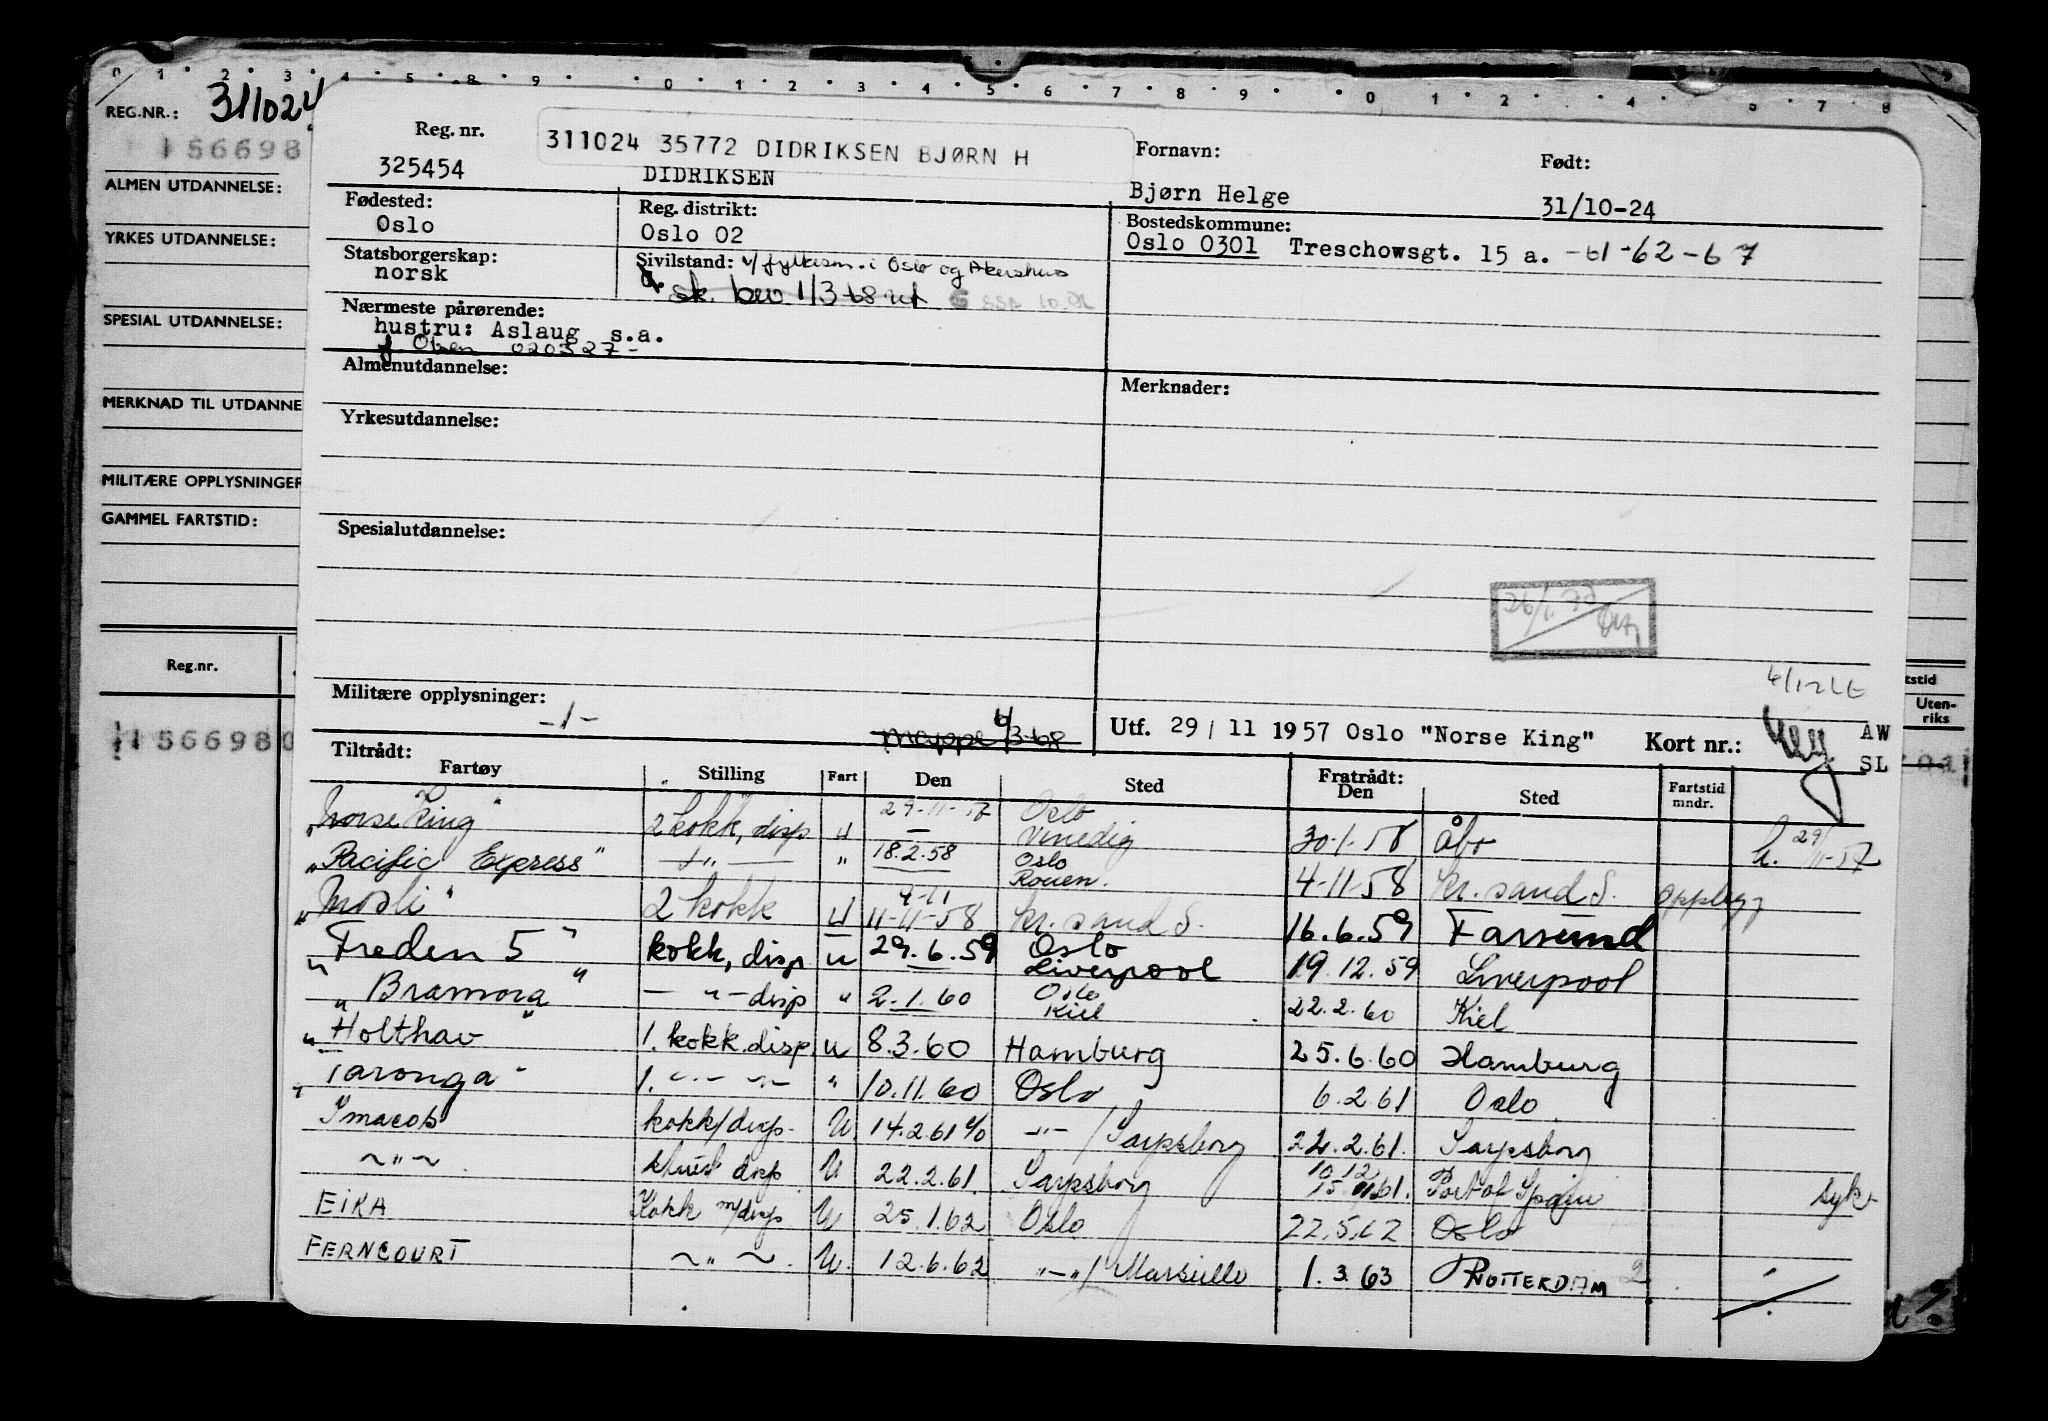 0 1 2 3 4 5 8 9 0 1 2 3 4 5 6 7 8 9 0 1 2 4 6 7 8
REG.NR.: 311024
156698
ALMEN UTDANNELSE:
YRKES UTDANNELSE:
SPESIAL UTDANNELSE:
MERKNAD TIL UTDANNE
MILITÆRE OPPLYSNINGER
GAMMEL FARTSTID:
Reg.nr.
1566980
Reg. nr. 311024 35772 DIDRIKSEN BJØRN H Fornavn: Født:
325454 DIDRIKSEN Bjørn Helge 31/10-24
Fødested: Reg. distrikt: Bostedskommune:
Oslo Oslo 02 Oslo 0301 Treschowsgt. 15 a. -61-62-67
Statsborgerskap: Sivilstand: v/fylkesm. i Oslo og Akershus
norsk sk. bev 1/3-68
Nærmeste pårørende:
hustru: Aslaug s.a.
f Olsen 020327-
Almenutdannelse: Merknader:
Yrkesutdannelse:
Spesialutdannelse:
Militære opplysninger:
-1-
Mappe 3-68
Utf. 29/11 1957 Oslo "Norse King" Kort nr.: AW
SL
tstid
Uten-
riks
Tiltrådt: Fratrådt:
Fartøy Stilling Fart Den Sted Den Sted Fartstid mndr.
"Norse King" 2 kokk, disp U 29-11-57 Oslo Venedig 30-1-58 Åbo 29/11-57
"Pacific Express" -"- " 18.2.58 Oslo Rouen. 4-11-58 Kr.sand S. opplegg
"Mosli" 2 kokk U 4-11 11-11-58 Kr.sand S. 16.6.59 Farsund
"Freden 5" kokk, disp u 29.6.59 Oslo Liverpool 19.12.59 Liverpool
"Bramora" -"- disp " 2.1.60 Oslo Kiel 22.2.60 Kiel
"Holthav" 1. kokk.disp u 8.3.60 Hamburg 25.6.60 Hamburg
"Taronga" 1. -"- -"- " 10.11.60 Oslo 6.2.61 Oslo
Imacos kokk/disp. U. 14.2.61 -"- / Sarpsborg 22.2.61. Sarpsborg
-"- disp U 22.2.61. Sarpsborg 10.12 61. Port of Spain syk
EIKA Kokk m/disp U 25.1.62 Oslo 22.5.62 Oslo
FERNCOURT -"- U. 12.6.62 -"-/ Marseille 1.3.63 ROTTERDAM